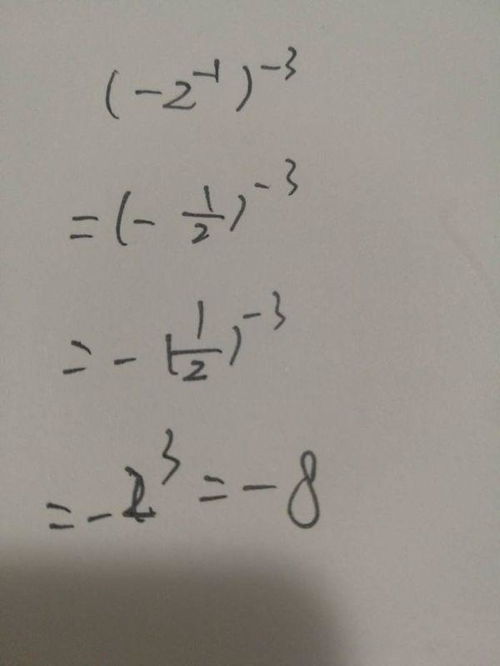 (-2⁻¹)⁻³
=(-1/2)⁻³
=-(1/2)⁻³
=-2³=-8